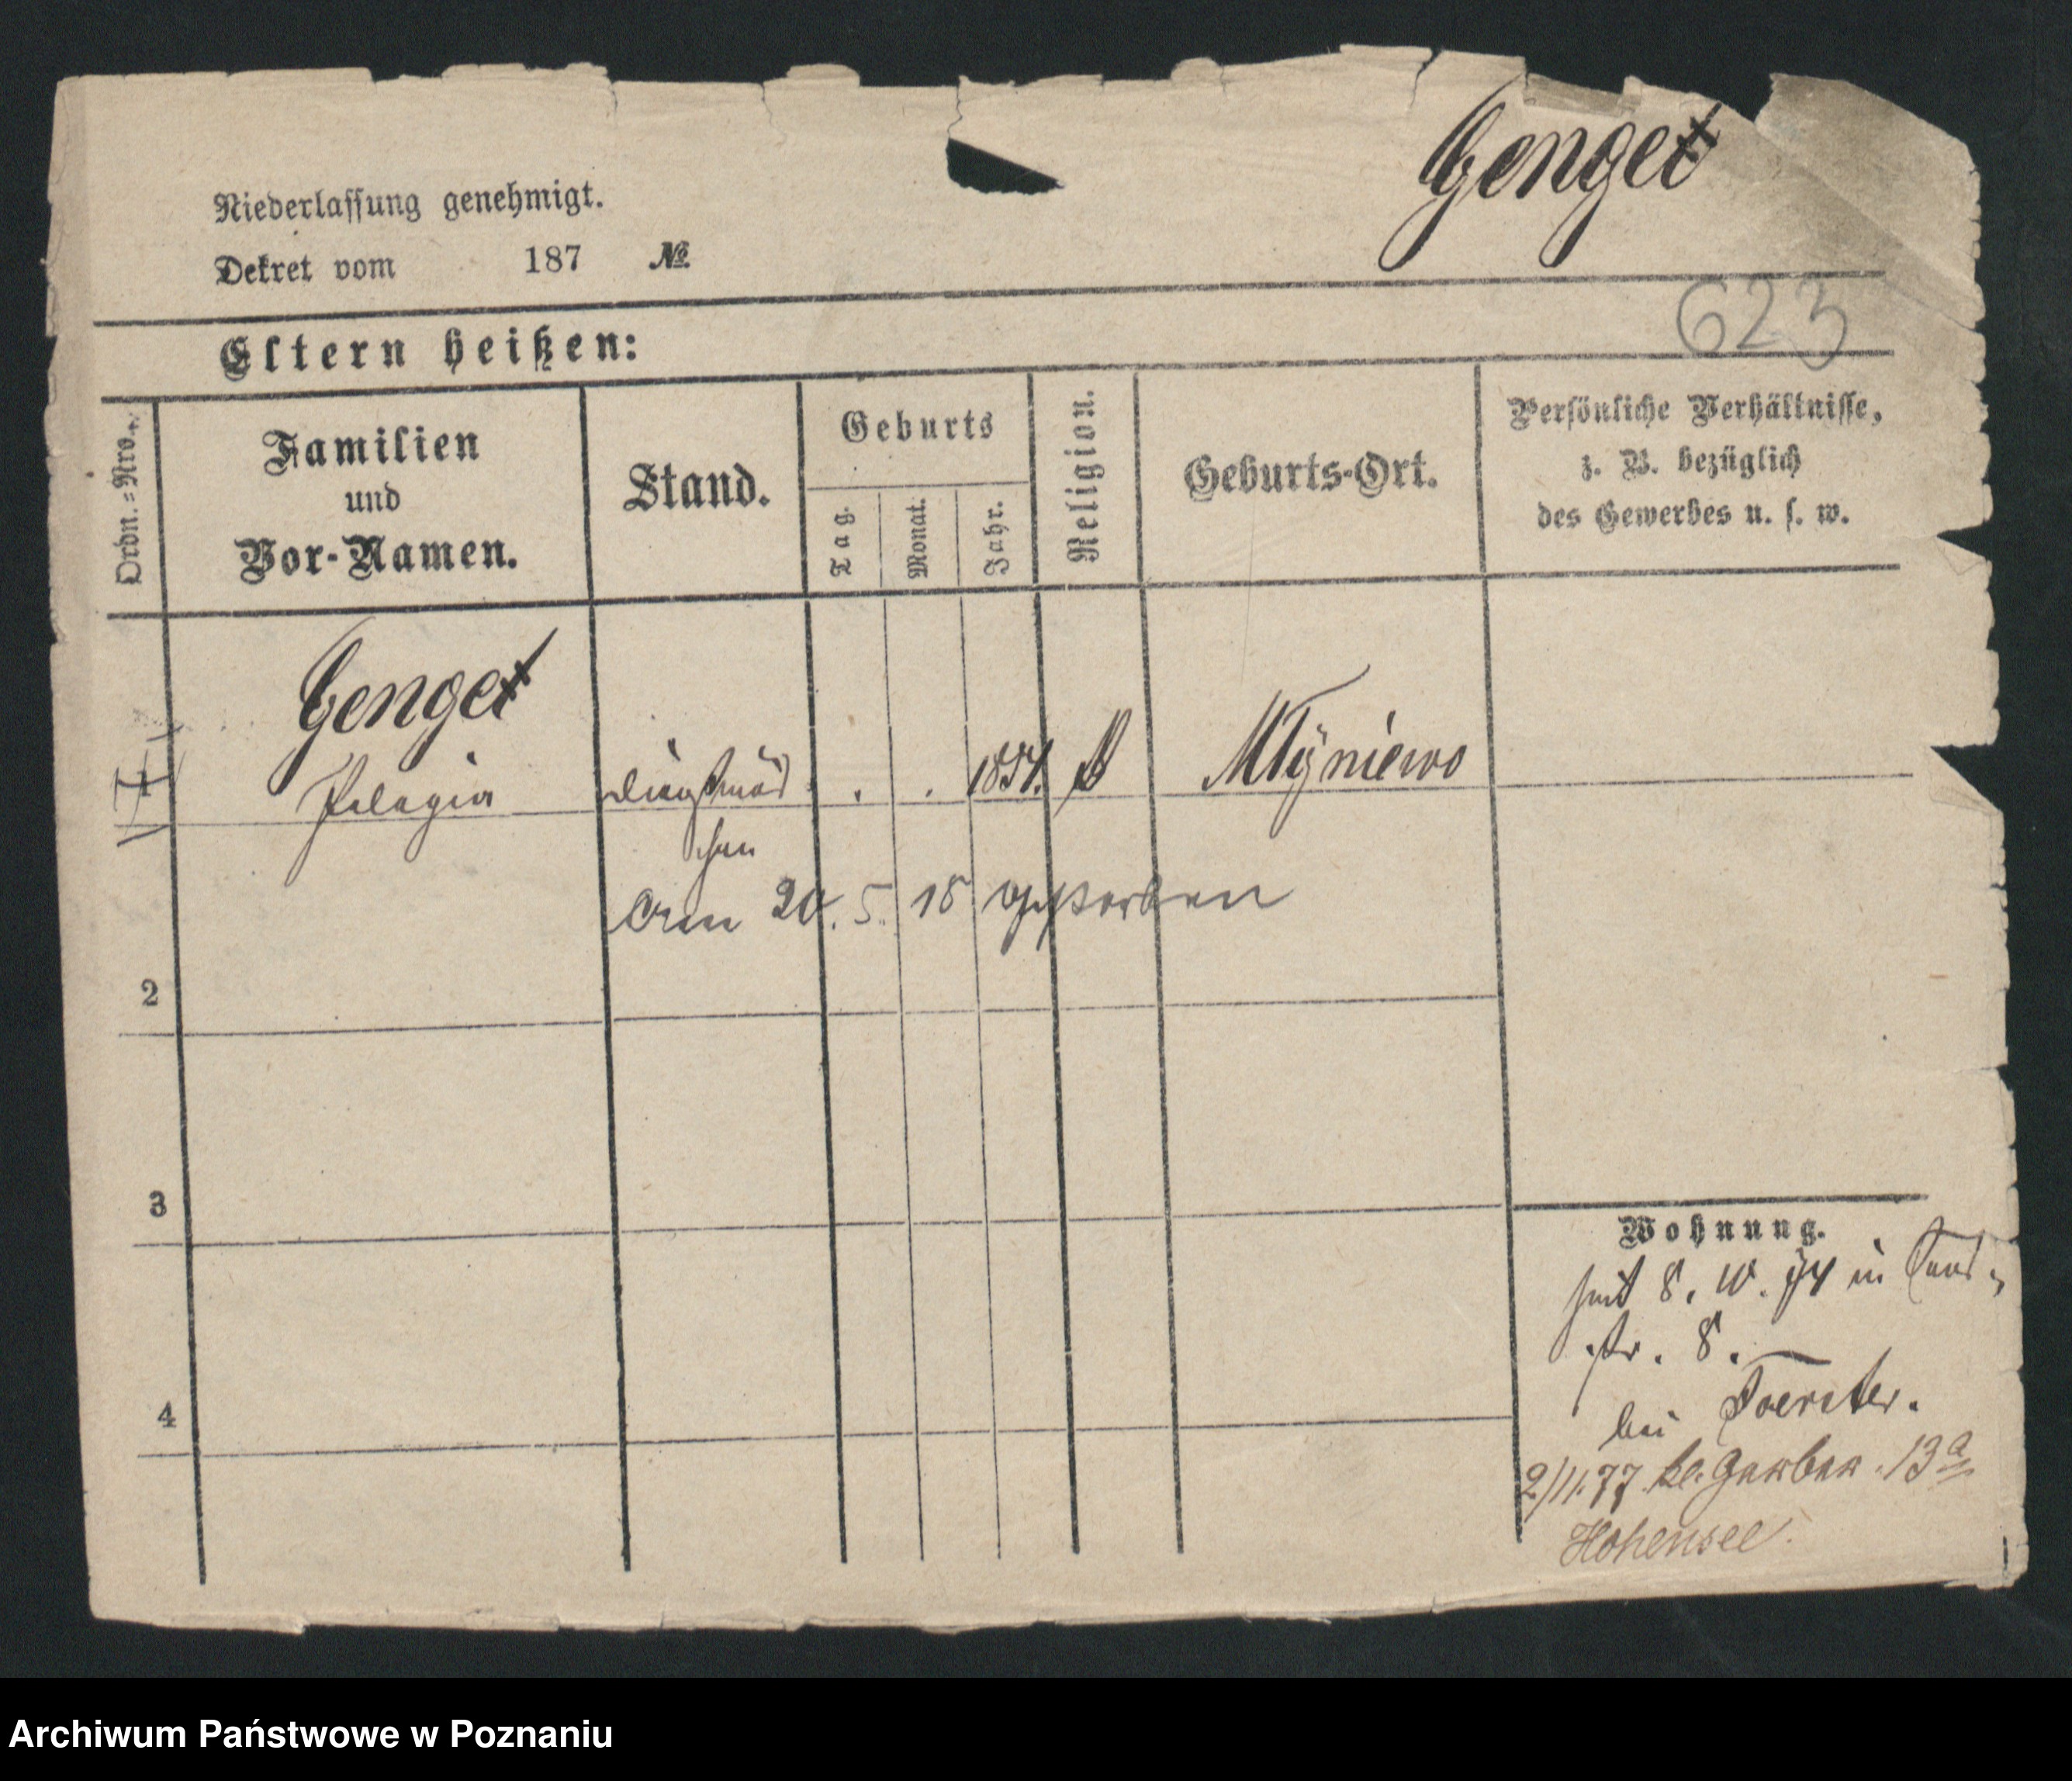 Genget
Niederlassung genehmigt.
Dekret vom 187 №
623
Eltern heißen:
Ordn.=Nro.
Familien
und
Vor-Namen.
Stand.
Geburts
Tag.
Monat.
Jahr.
Religion.
Geburts-Ort.
Persönliche Verhältnisse,
z. B. bezüglich
des Gewerbes u. s. w.
Genget
Pelagia Dienstmäd . . 1854. Młyniewo
chen
Am 20. 5. 18 gestorben
2
3
4
Wohnung.
seit 8. 10. 74 in
str. 8.
bei Foerster.
2/11.77 kl. Gerber. 13a
Hohensee.
Archiwum Państwowe w Poznaniu